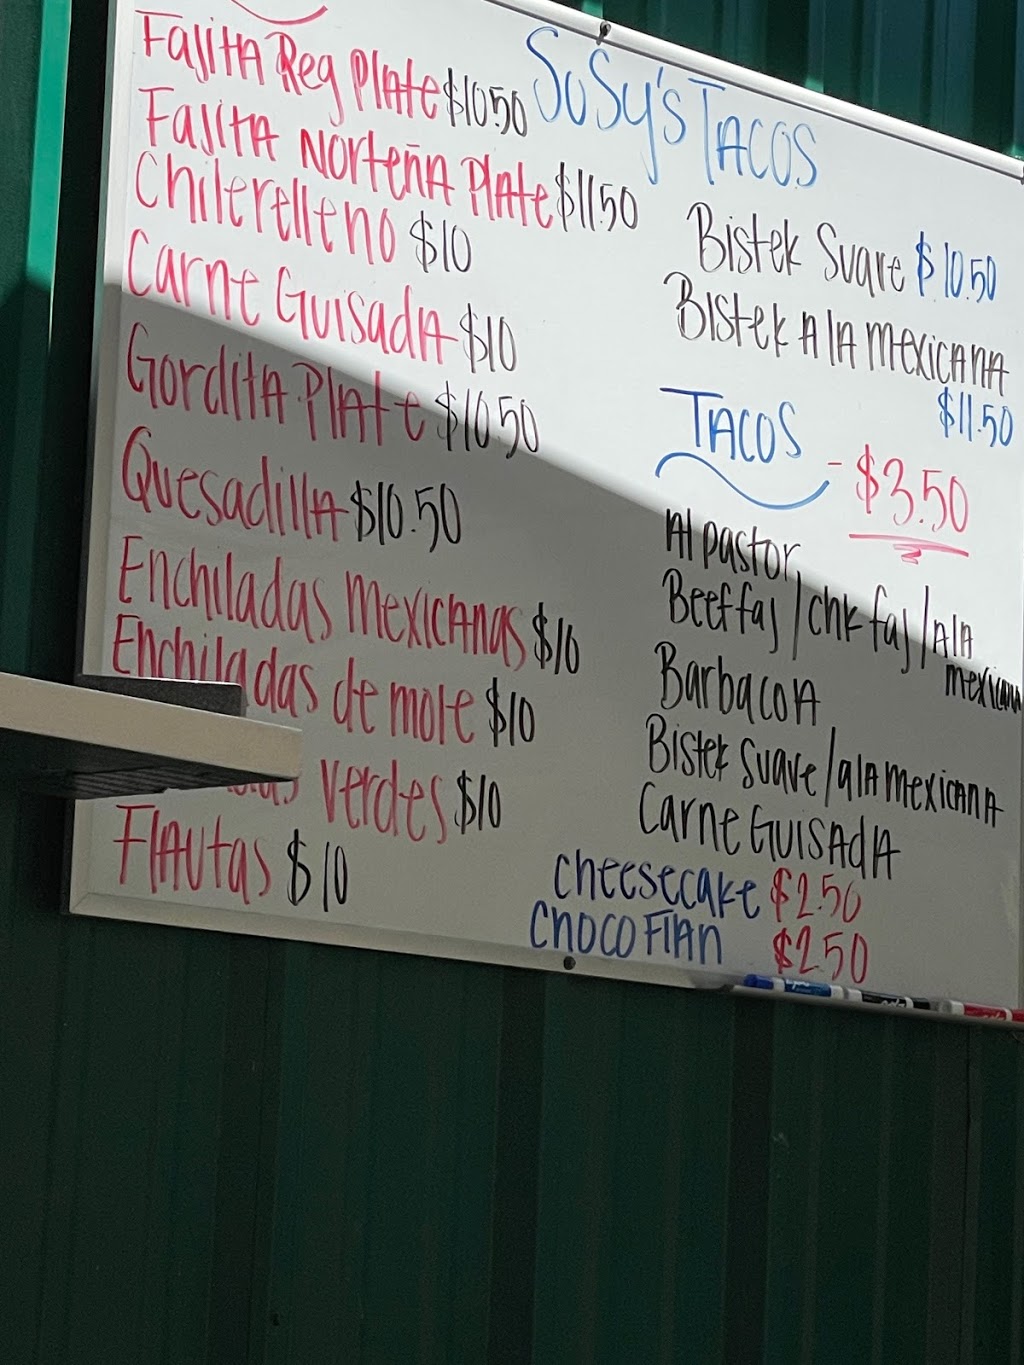 SuSy's TACOS
Fajita Reg Plate $10.50
Fajita Norteña Plate $11.50
Chilerelleno $10
Carne Guisada $10
Gordita Plate $10.50
Quesadilla $10.50
Enchiladas Mexicanas $10
Enchiladas de mole $10
Verdes $10
Flautas $10
Bistek Suave $10.50
Bistek A la Mexicana
$11.50
TACOS - $3.50
Al pastor
Beef faj / chk faj / Ala
mexicana
Barbacoa
Bistek Suave / ala mexicana
Carne Guisada
Cheesecake $2.50
Choco Flan $2.50